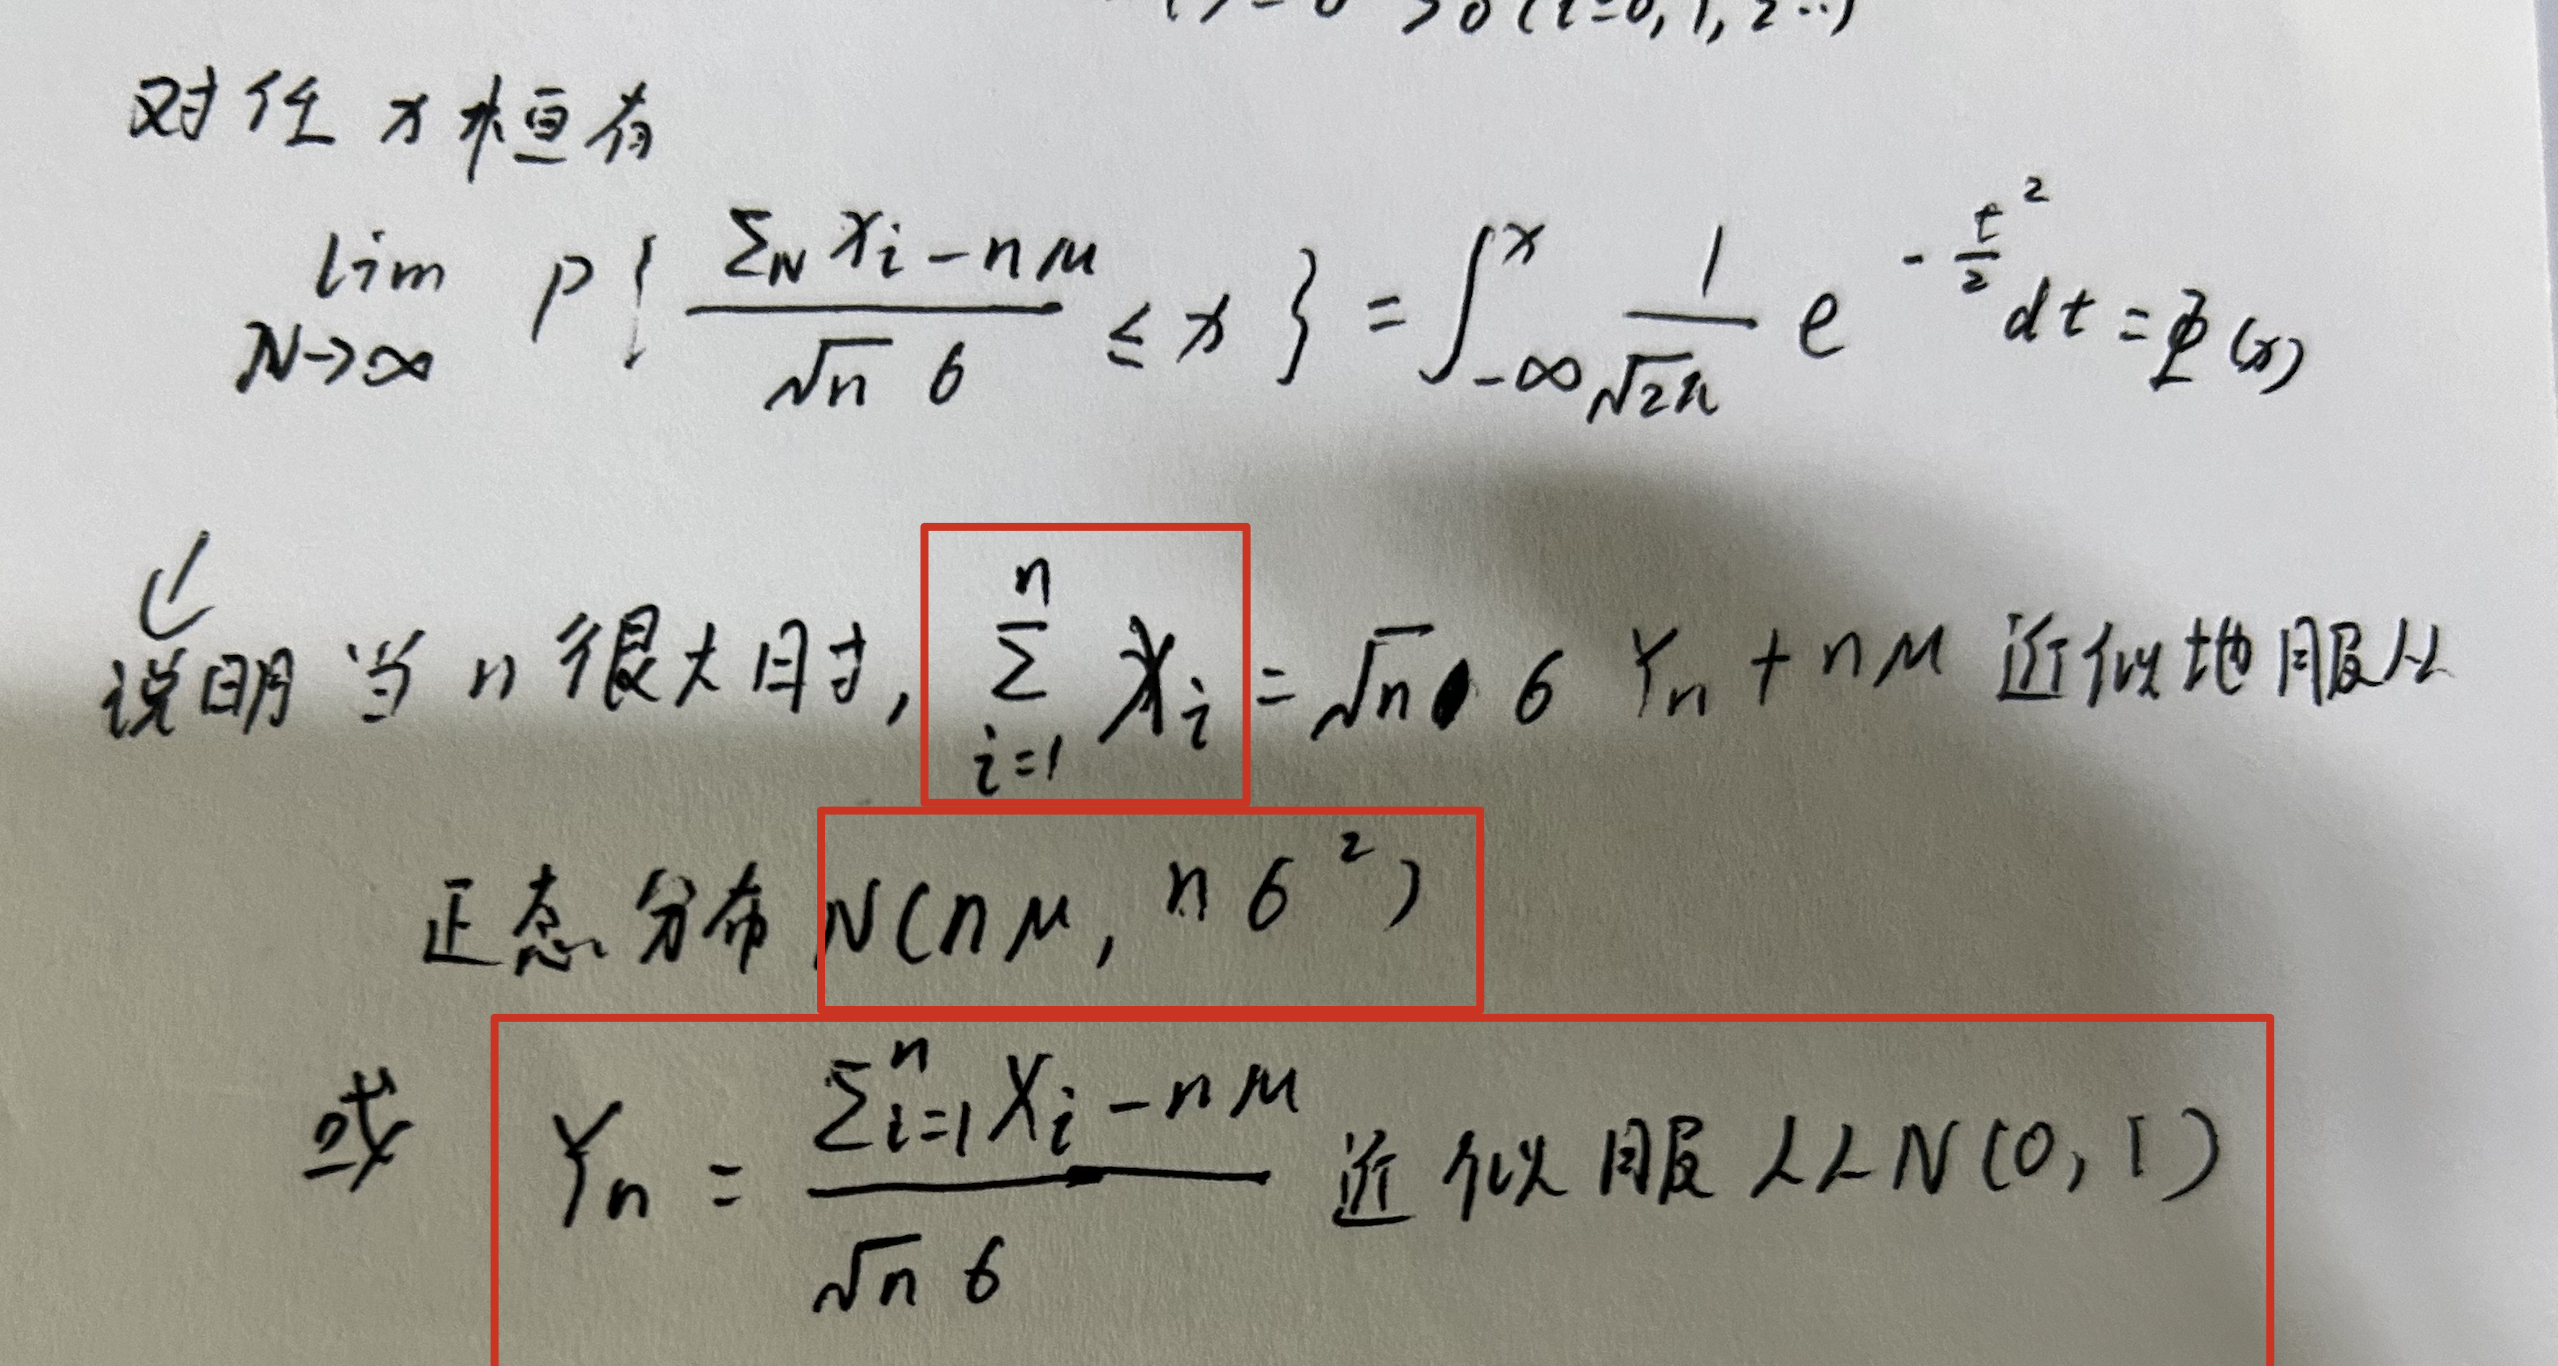 >0 (i=0,1,2…)
对任 x 恒有
lim N→∞ P{ (Σ_N Xi - nμ) / (√n σ) ≤ x } = ∫_{-∞}^{x} 1/√2π e^{-t²/2} dt = Φ(x)
说明当 n 很大时, Σ_{i=1}^{n} Xi = √n σ Yn + nμ 近似地服从
正态分布 N(nμ, nσ²)
或 Yn = (Σ_{i=1}^{n} Xi - nμ) / (√n σ) 近似服从 N(0,1)